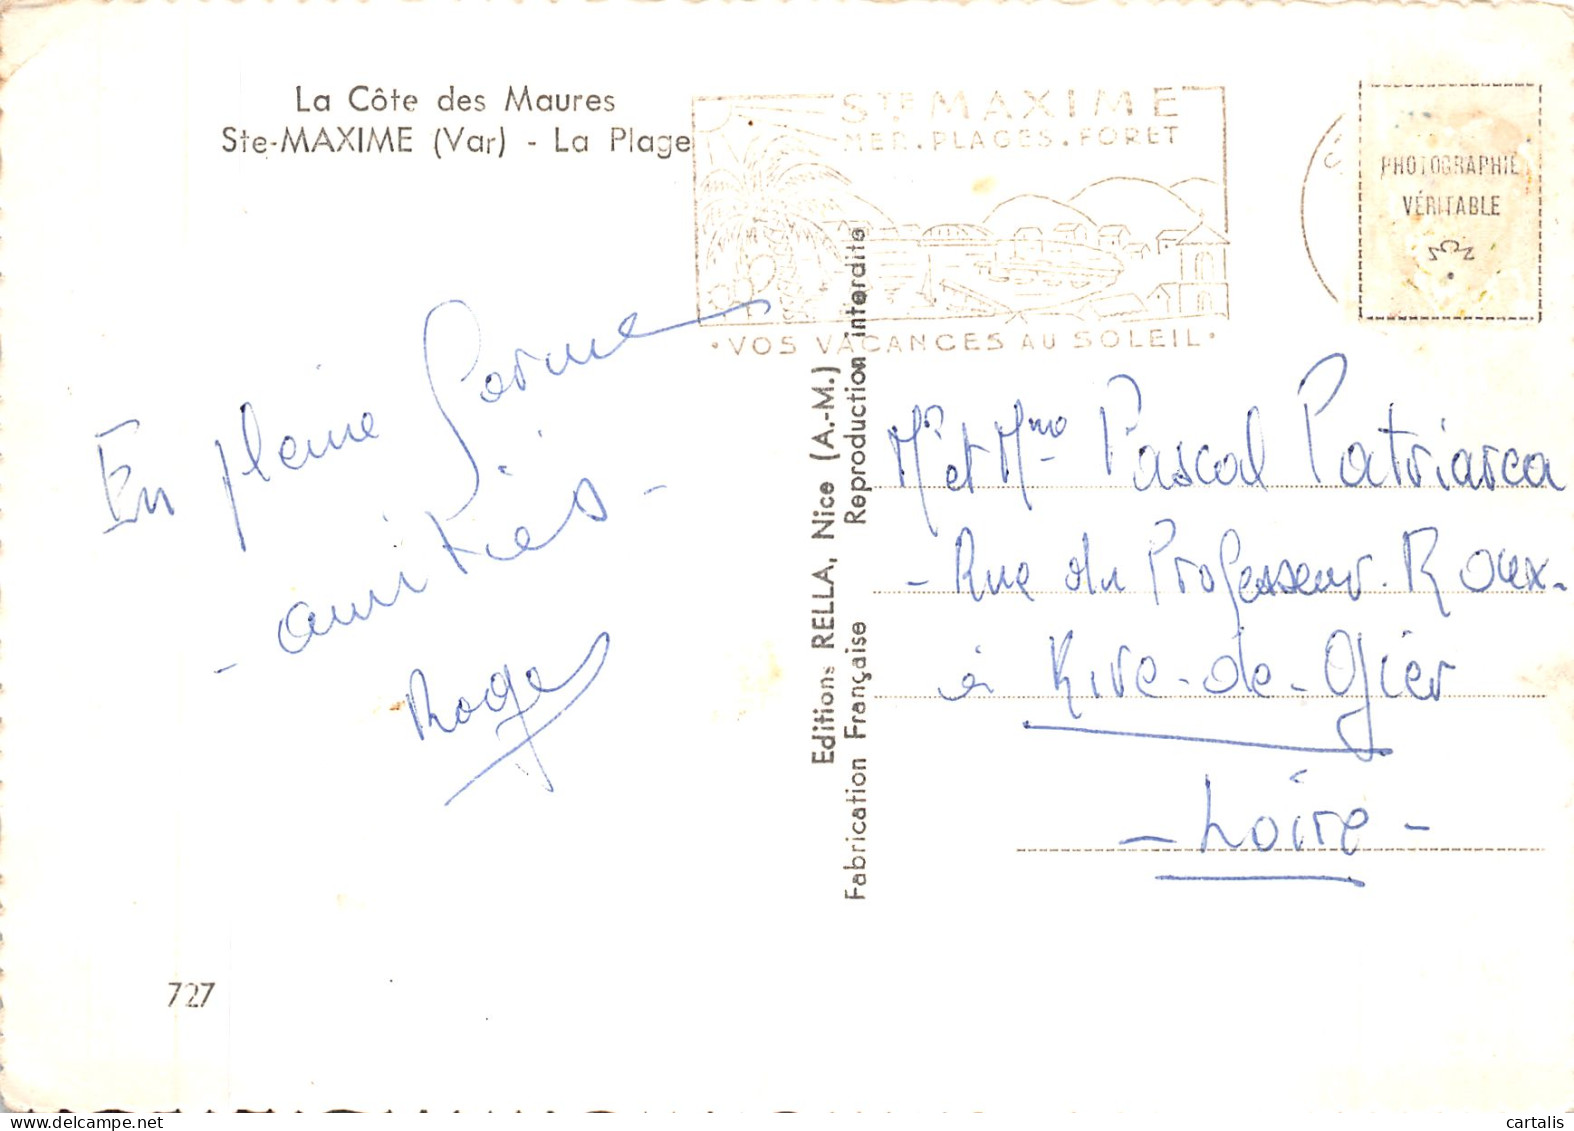 La Côte des Maures
Ste-MAXIME (Var) - La Plage
STE MAXIME
MER. PLAGES. FORET
• VOS VACANCES AU SOLEIL •
PHOTOGRAPHIE
VÉRITABLE
En pleine forme
- amitiés -
Roger
Editions RELLA, Nice (A.-M.)
Fabrication Française Reproduction interdite
Mr et Mme Pascal Patriarca
- Rue du Professeur. Roux -
à Rive-de-Gier
- Loire -
727
cartalis